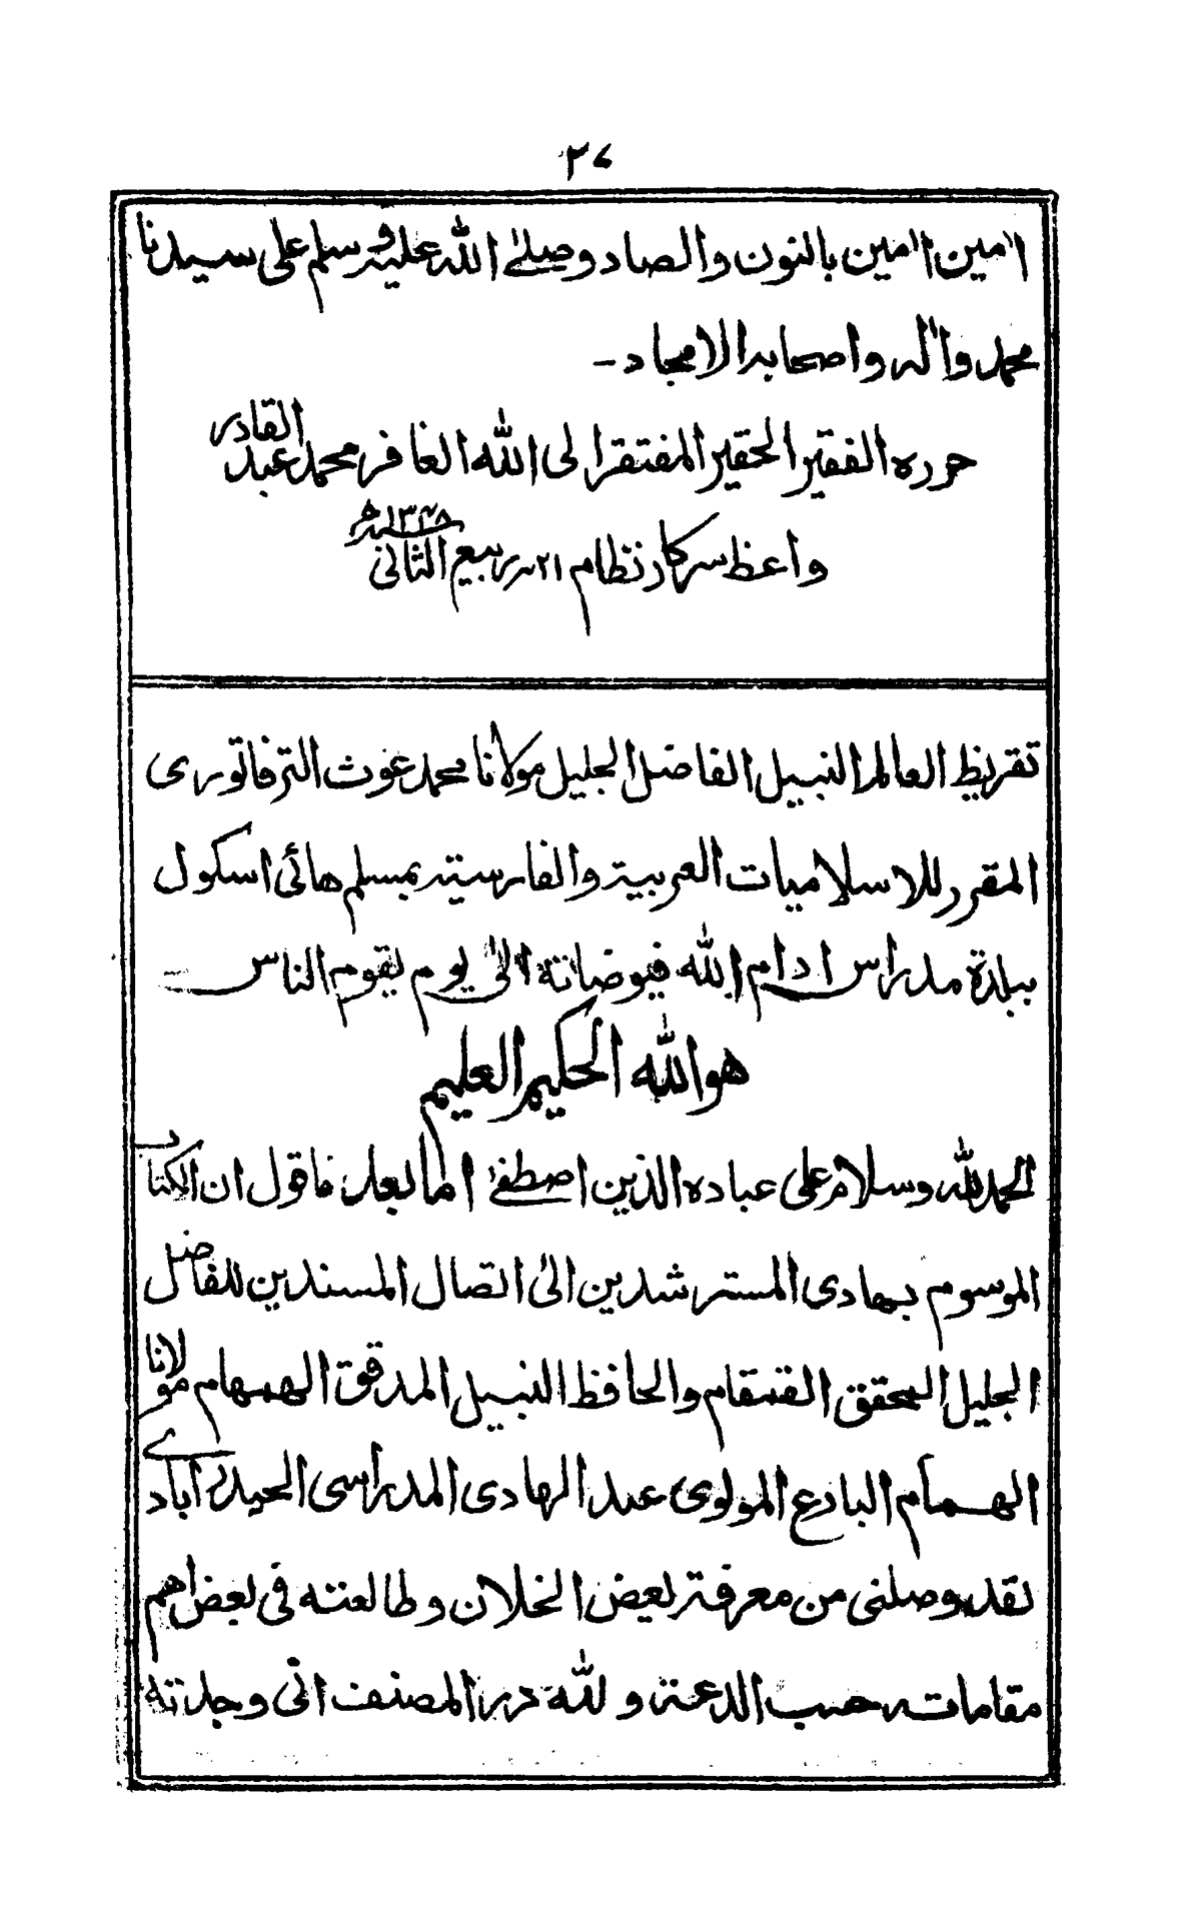 ٢٧
اٰمين اٰمين بالنون والصاد وصلى الله عليه وسلم على سيدنا
محمد واٰله واصحابه الامجاد -
حرره الفقير الحقير المفتقر الى الله الغافر محمد عبد القادر
واعظ سركار نظام ٢١ ربيع الثانى ١٣٤٨ه
تقريظ العالم النبيل الفاضل الجليل مولانا محمد غوث الترفاتورى
المقرر للاسلاميات العربية والفارسية بمسلم هائى اسكول
ببلدة مدراس ادام الله فيوضاته الىٰ يوم يقوم الناس
هو الله الحكيم العليم
الحمد لله وسلام على عباده الذين اصطفىٰ اما بعد فاقول ان الكتاب
الموسوم بهادى المسترشدين الىٰ اتصال المسندين للفاضل
الجليل المحقق القمقام والحافظ النبيل المدقق الهمهام مولانا
الهمام البارع المولوى عبد الهادى المدراسى الحيدرآبادے
لقد وصلنى من معرفة بعض الخلان وطالعته فى بعض اهم
مقاماته حسب الدعة ولله در المصنف انى وجدته